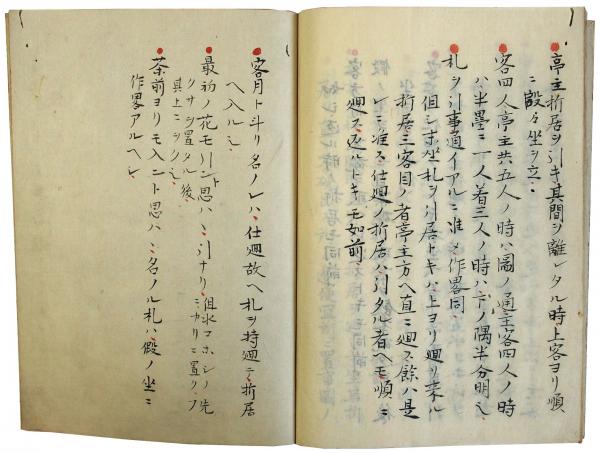 亭主折居ヲ引キ其間ヲ離レタル時上客ヨリ順
ニ段々坐ヲ立
客四人亭主共五人ノ時ハ圖ノ通主客四人ノ時
ハ半畳ニ一人着三人ノ時ハ下ノ隅半分明シ
札ヲ引事通イアルニ准〆作畧同
但シホ坐札ヲ引居トキハ上ヨリ廻リ来ル
折居三客目ノ者亭主方ヘ直ニ廻ス餘ハ是
レニ准ス仕廻ノ折居ハ引タル者ヘモ順ニ
廻ス返ルトキモ如前
客月ト斗リ名ノレハ仕廻故ヘ札ヲ持廻ニテ折居
ヘ入ルヽ
最初ノ花モ引ント思ハヽ引ナリ
クサヲ置タル後
其上ニヲク
茶前ヨリモ入ント思ハヽ名ノル札ハ假ノ坐ニ
作畧アルヘシ